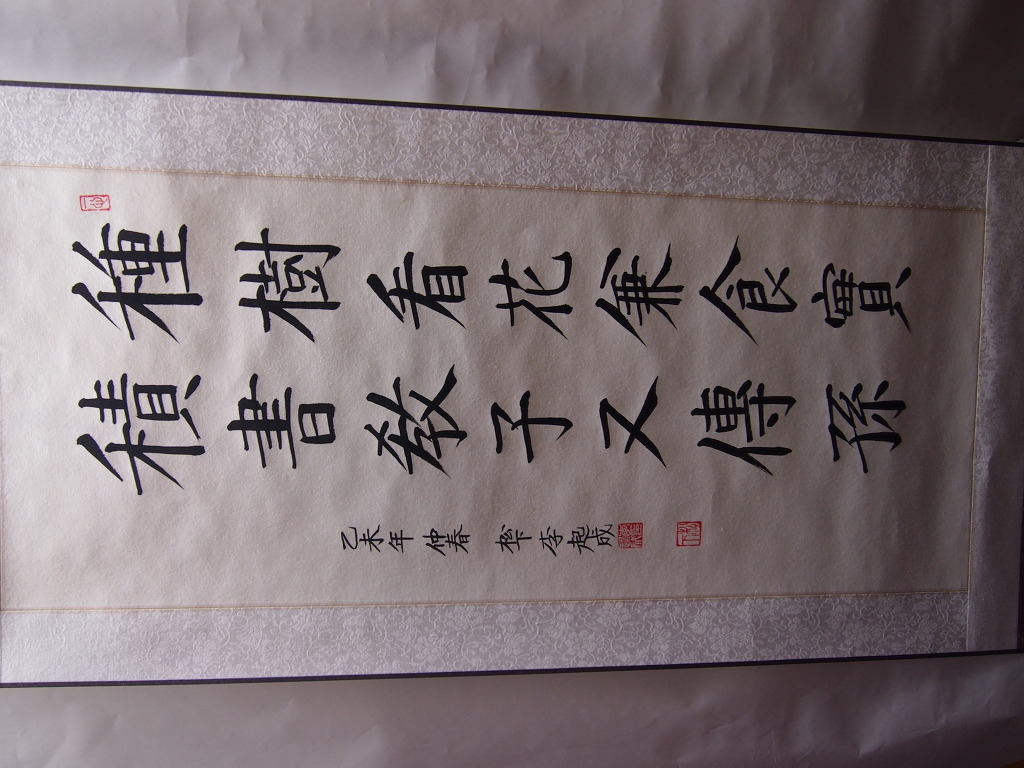 種樹看花兼食實
積書敎子又傳孫
乙未年 仲春 李起成